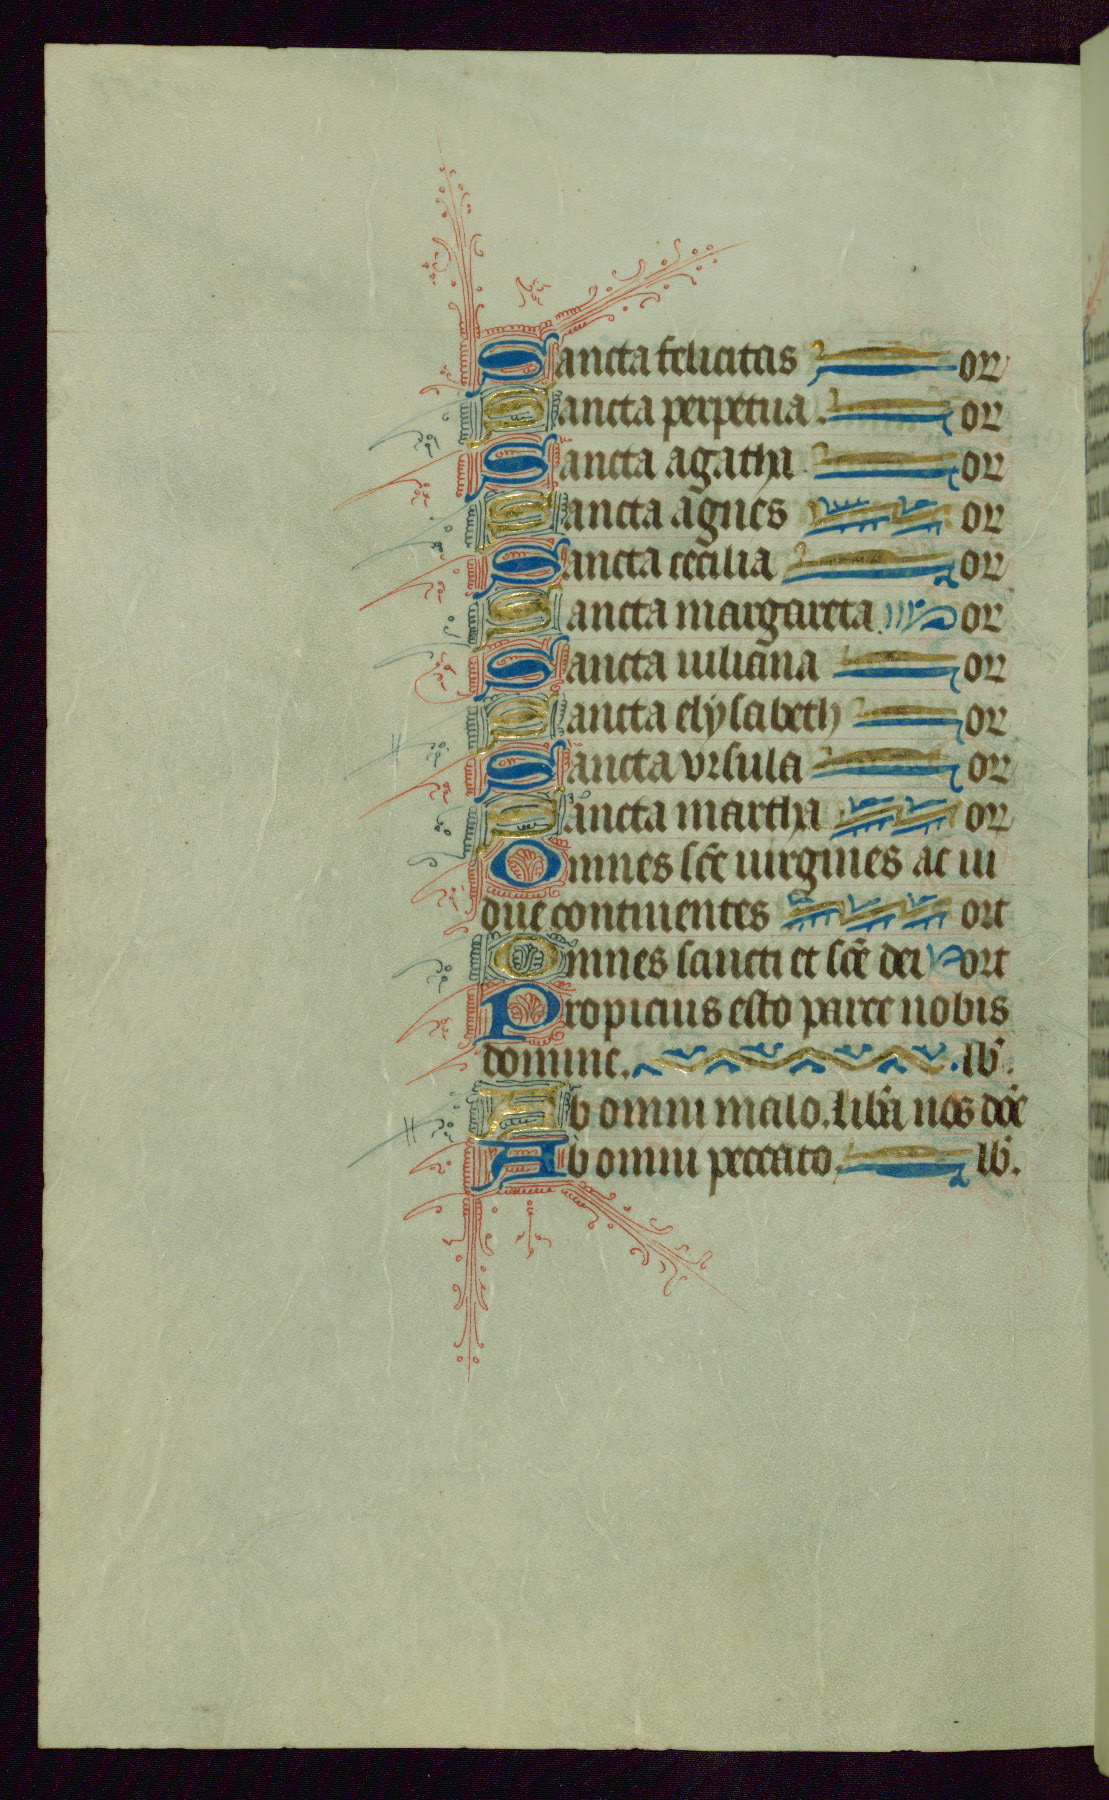 Sancta felicitas or
Sancta perpetua. or
Sancta agatha or
Sancta agnes or
Sancta cecilia or
Sancta margareta or
Sancta iuliana or
Sancta elysabeth or
Sancta vrsula or
Sancta martha or
Omnes scē uirgines ac ui
due continentes ort
Omnes sancti et scē dei ort
Propicius esto parce nobis
domine. lb̄.
Ab omni malo. lib̄a nos dn̄e
Ab omni peccato. lb̄.